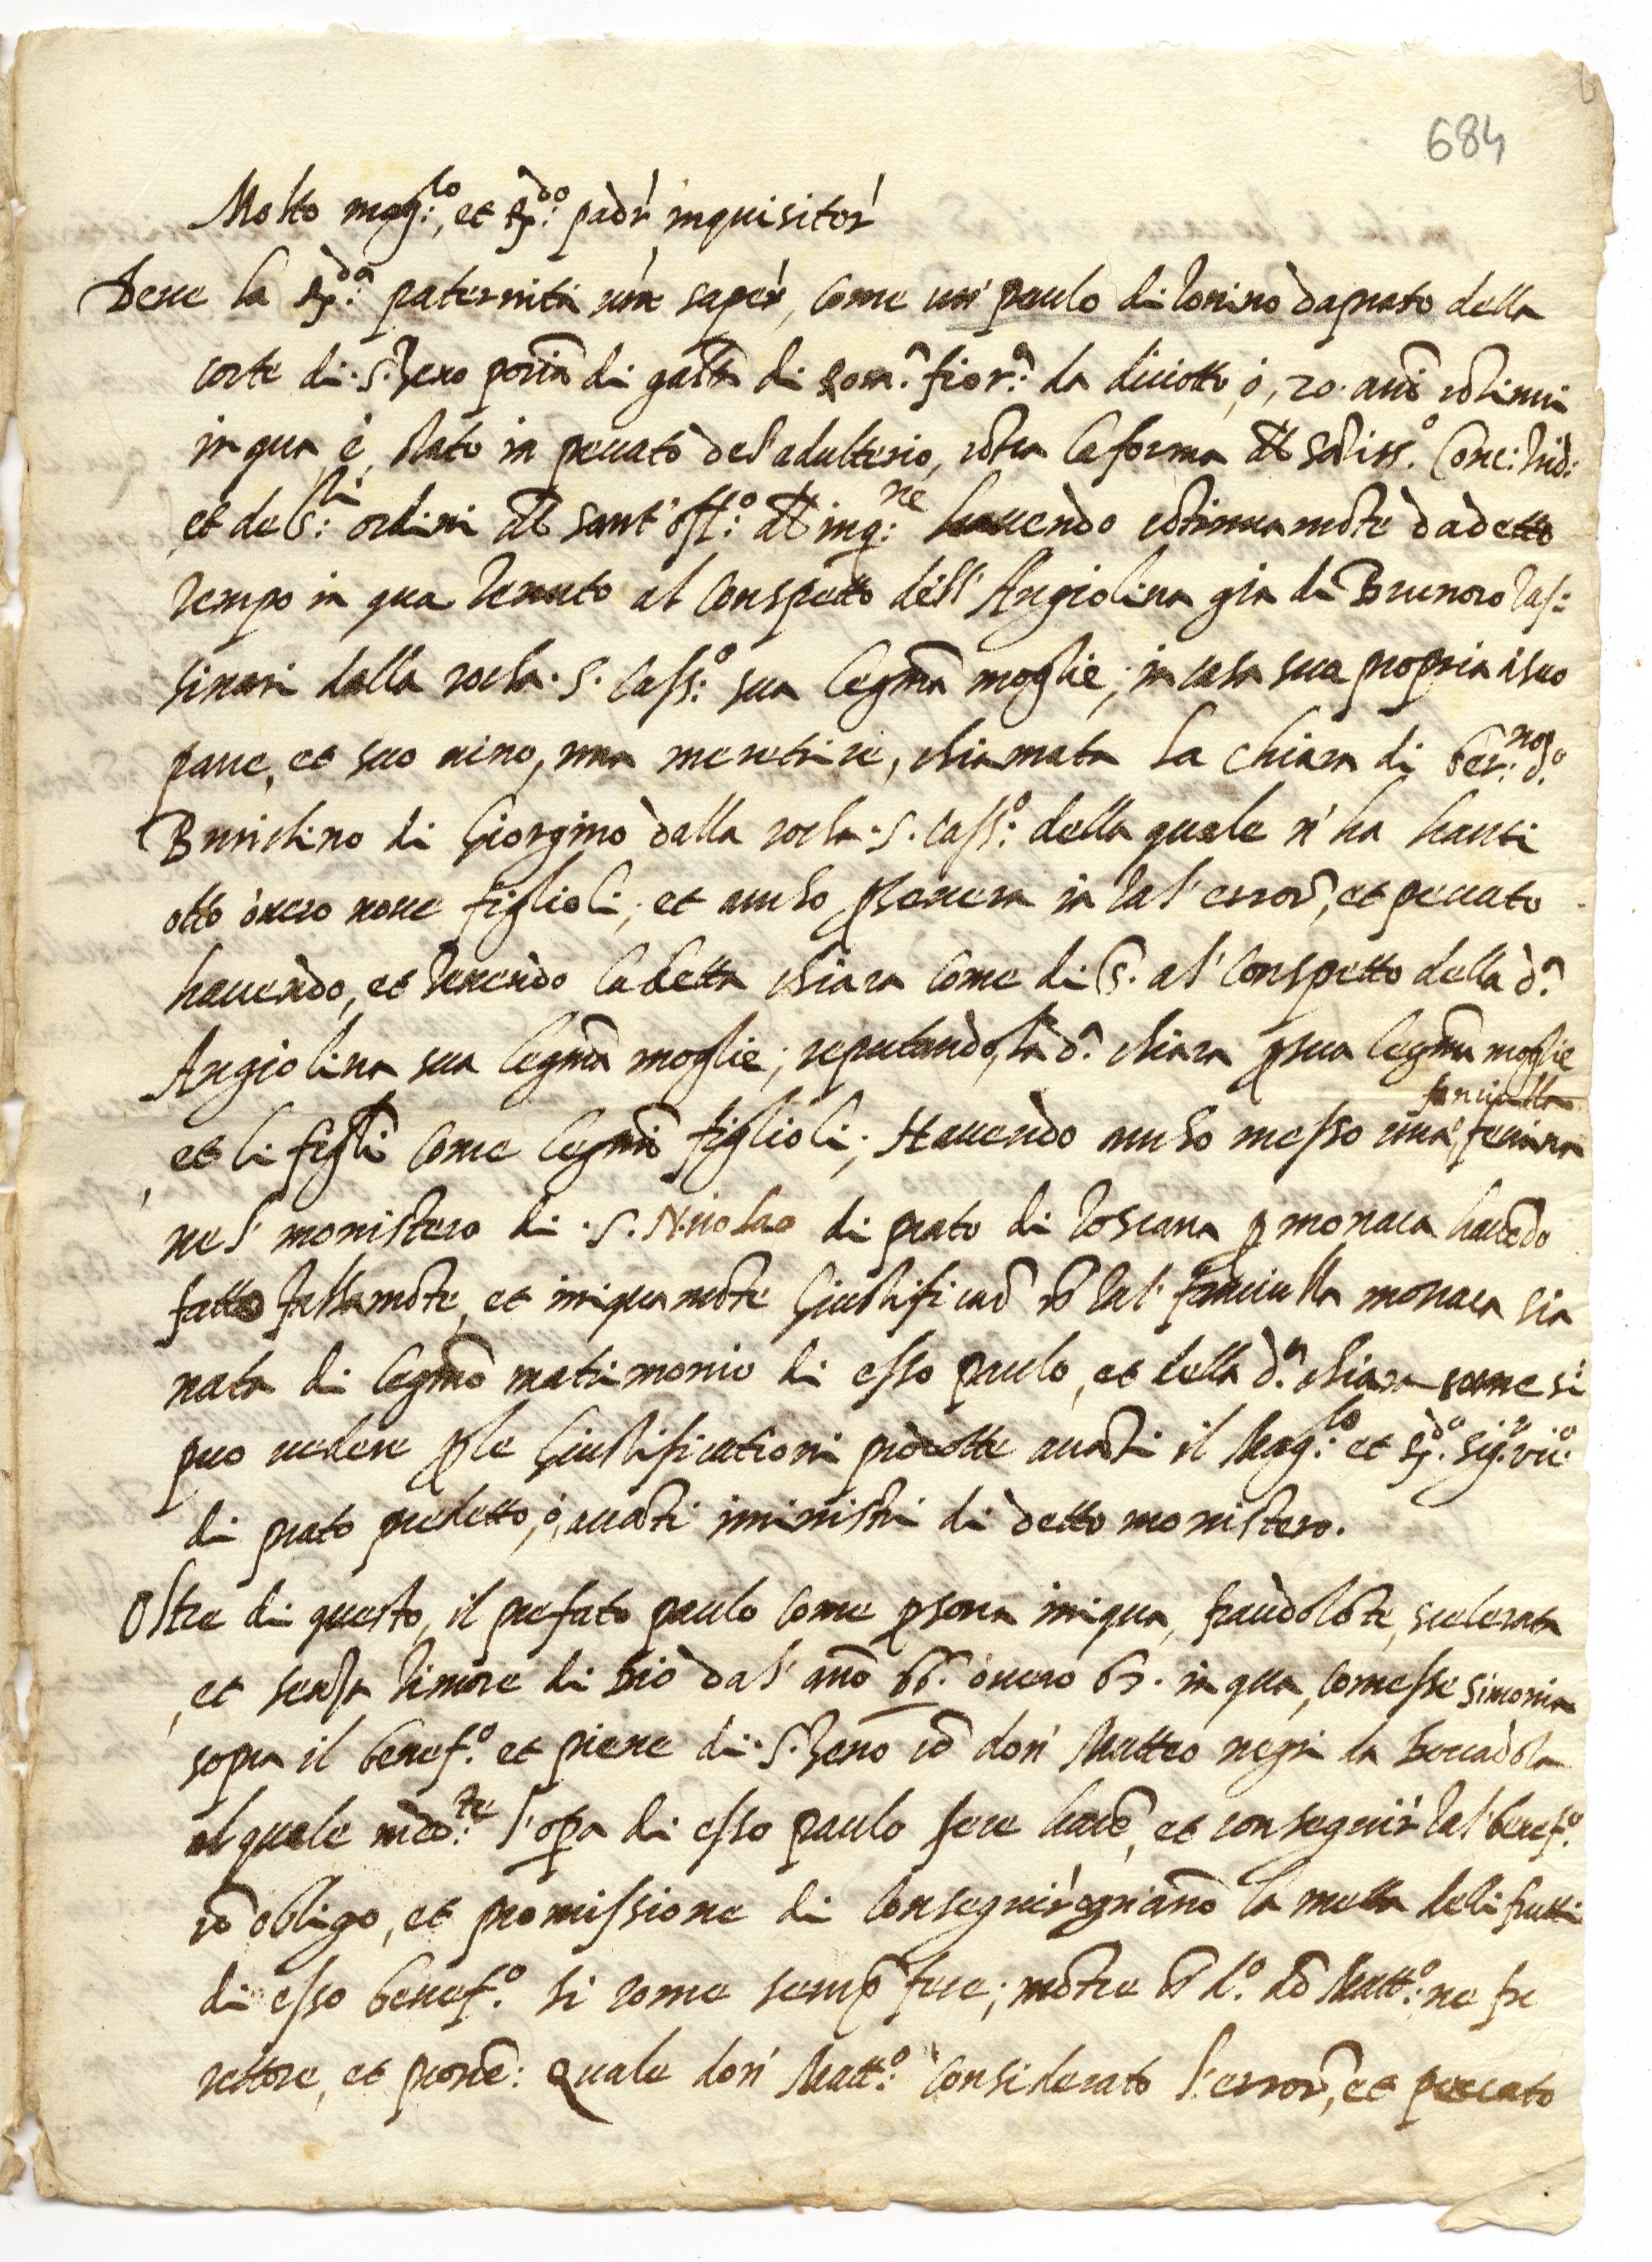 684
Molto mag:co, et Rdo: padr' inquisitor'
Deue la Rda: paternità ura saper', come un' paulo di Tonino da prato della
corte di .S. Zeno potria di galta di Roma. fior.a da diciotto, ò, 20. anni cōtinui
in qua è, stato in peccato del' adulterio, cōtra la forma dl Sātiss.o Conc: Trid:
et de S:ti ordini dl sant' off:o dl inq:ne hauendo cōtinuamēte da detto
tempo in qua tenuto al conspetto dell' Angiolina gia di Brunoro Tas:
sinari dalla rocha .S. Cass:o sua legma moglie; in casa sua propria à suo
pane, et suo uino, una meretrice, chiamata la Chiara di ber:no d.o
Brunichino di Giorgino dalla rocha .S. Cass:o della quale n' ha hauti
otto òuero noue figlioli; et ancho pseuera in tal' error, et peccato
hauendo, et tenendo la detta chiara come di S. al' conspetto della d.a
Angiolina sua legma moglie; reputando, la d.a chiara p sua legma moglie
et li figli come legmi figlioli; Hauendo ancho messo una femina fanciulla
nel' monistero di .S. Nicolao di prato di Toscana p monaca hauēdo
fatto falsamēte, et iniquamēte Giustificar ch tal' fanciulla monaca sia
nata di legmo matrimonio di esso paulo, et della d.a chiara come si
puo uedere p le Giustificationi prodotte auāti il Mag:co et Rdo. Sig.r vic.o
di prato predetto, ò, auāti i ministri di detto monistero.
Oltre di questo, il prefato paulo come psona iniqua, fraudolēte, scelerata
et senza timore di Dio dal' anno 66. òuero 67. in qua, comesse simonia
sopra il benef.o et pieue di .S. Zeno cō don' Matteo negri da boccadola
el quale med:te l' opa di esso paulo fece hauē, et conseguir' tal' benef.o
cō obligo, et promissione di conseguir' ogn' anno la metta deli frutti
di esso benef.o si come semp fece; mētre ch d.o dō Matt:o ne fu
rettore, et possē: Quale don' Matt:o considerato l' error, et peccato